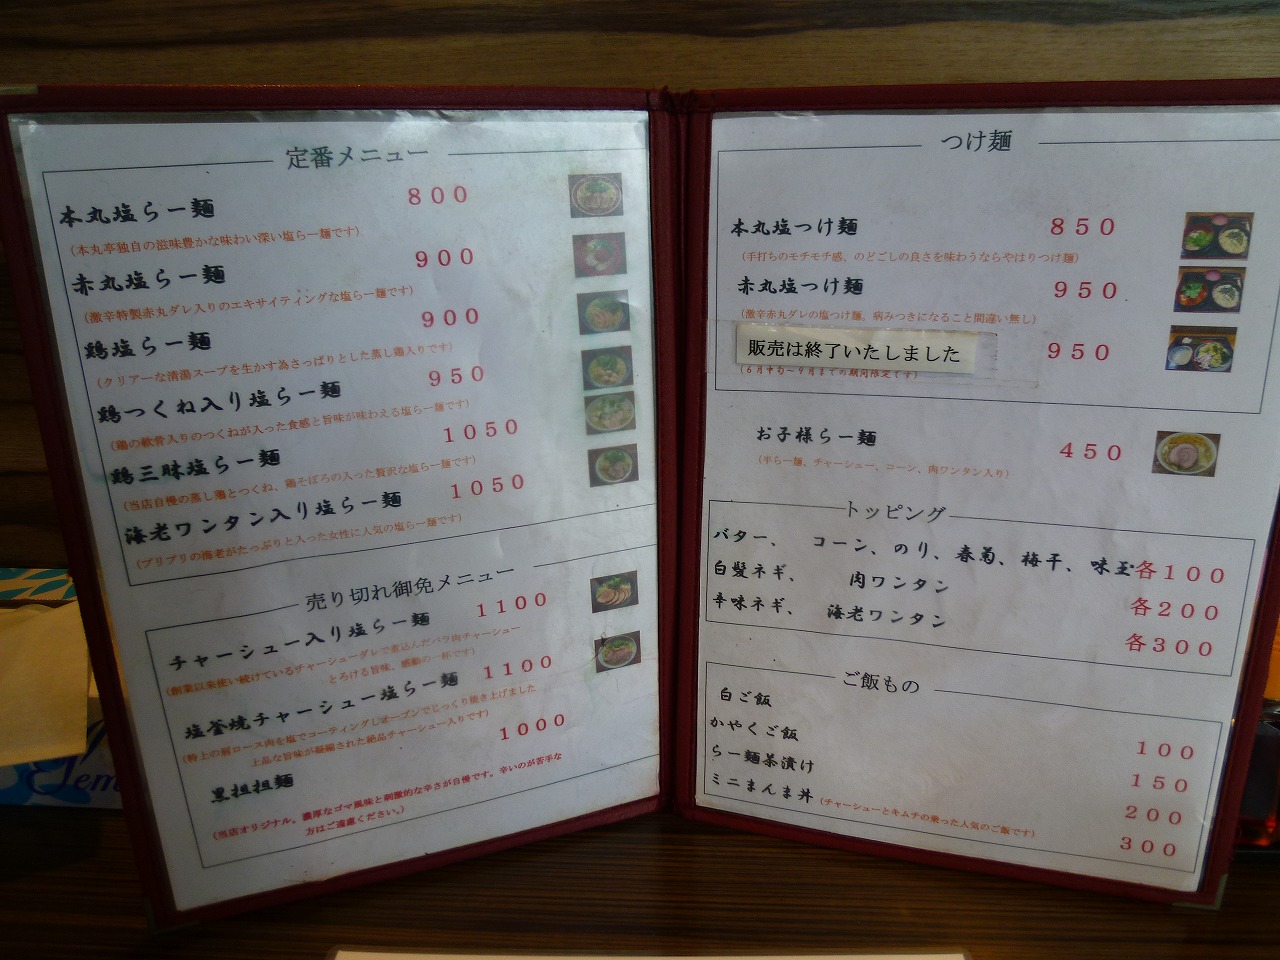 定番メニュー
本丸塩らー麺 800
(本丸亭独自の滋味豊かな味わい深い塩らー麺です)
赤丸塩らー麺 900
(激辛特製赤丸ダレ入りのエキサイティングな塩らー麺です)
鶏塩らー麺 900
(クリアーな清湯スープを生かす為さっぱりとした蒸し鶏入りです)
鶏つくね入り塩らー麺 950
(鶏の軟骨入りのつくねが入った食感と旨味が味わえる塩らー麺です)
鶏三昧塩らー麺 1050
(当店自慢の蒸し鶏とつくね、鶏そぼろの入った贅沢な塩らー麺です)
海老ワンタン入り塩らー麺 1050
(プリプリの海老がたっぷりと入った女性に人気の塩らー麺です)
売り切れ御免メニュー
チャーシュー入り塩らー麺 1100
(創業以来使い続けているチャーシューダレで煮込んだバラ肉チャーシュー
とろける旨味、感動の一杯です)
塩釜焼チャーシュー塩らー麺 1100
(特上の肩ロース肉を塩でコーティングしオーブンでじっくり焼き上げました
上品な旨味が凝縮された絶品チャーシュー入りです)
黒担担麺 1000
(当店オリジナル。濃厚なゴマ風味と刺激的な辛さが自慢です。辛いのが苦手な
方はご遠慮ください。)
つけ麺
本丸塩つけ麺 850
(手打ちのモチモチ感、のどごしの良さを味わうならやはりつけ麺)
赤丸塩つけ麺 950
(激辛赤丸ダレの塩つけ麺、病みつきになること間違い無し)
販売は終了いたしました 950
(6月中旬〜9月までの期間限定です)
お子様らー麺 450
(半らー麺、チャーシュー、コーン、肉ワンタン入り)
トッピング
バター、 コーン、のり、春菊、梅干、味玉 各100
白髪ネギ、 肉ワンタン 各200
辛味ネギ、 海老ワンタン 各300
ご飯もの
白ご飯 100
かやくご飯 150
らー麺茶漬け 200
ミニまんま丼 (チャーシューとキムチの乗った人気のご飯です) 300